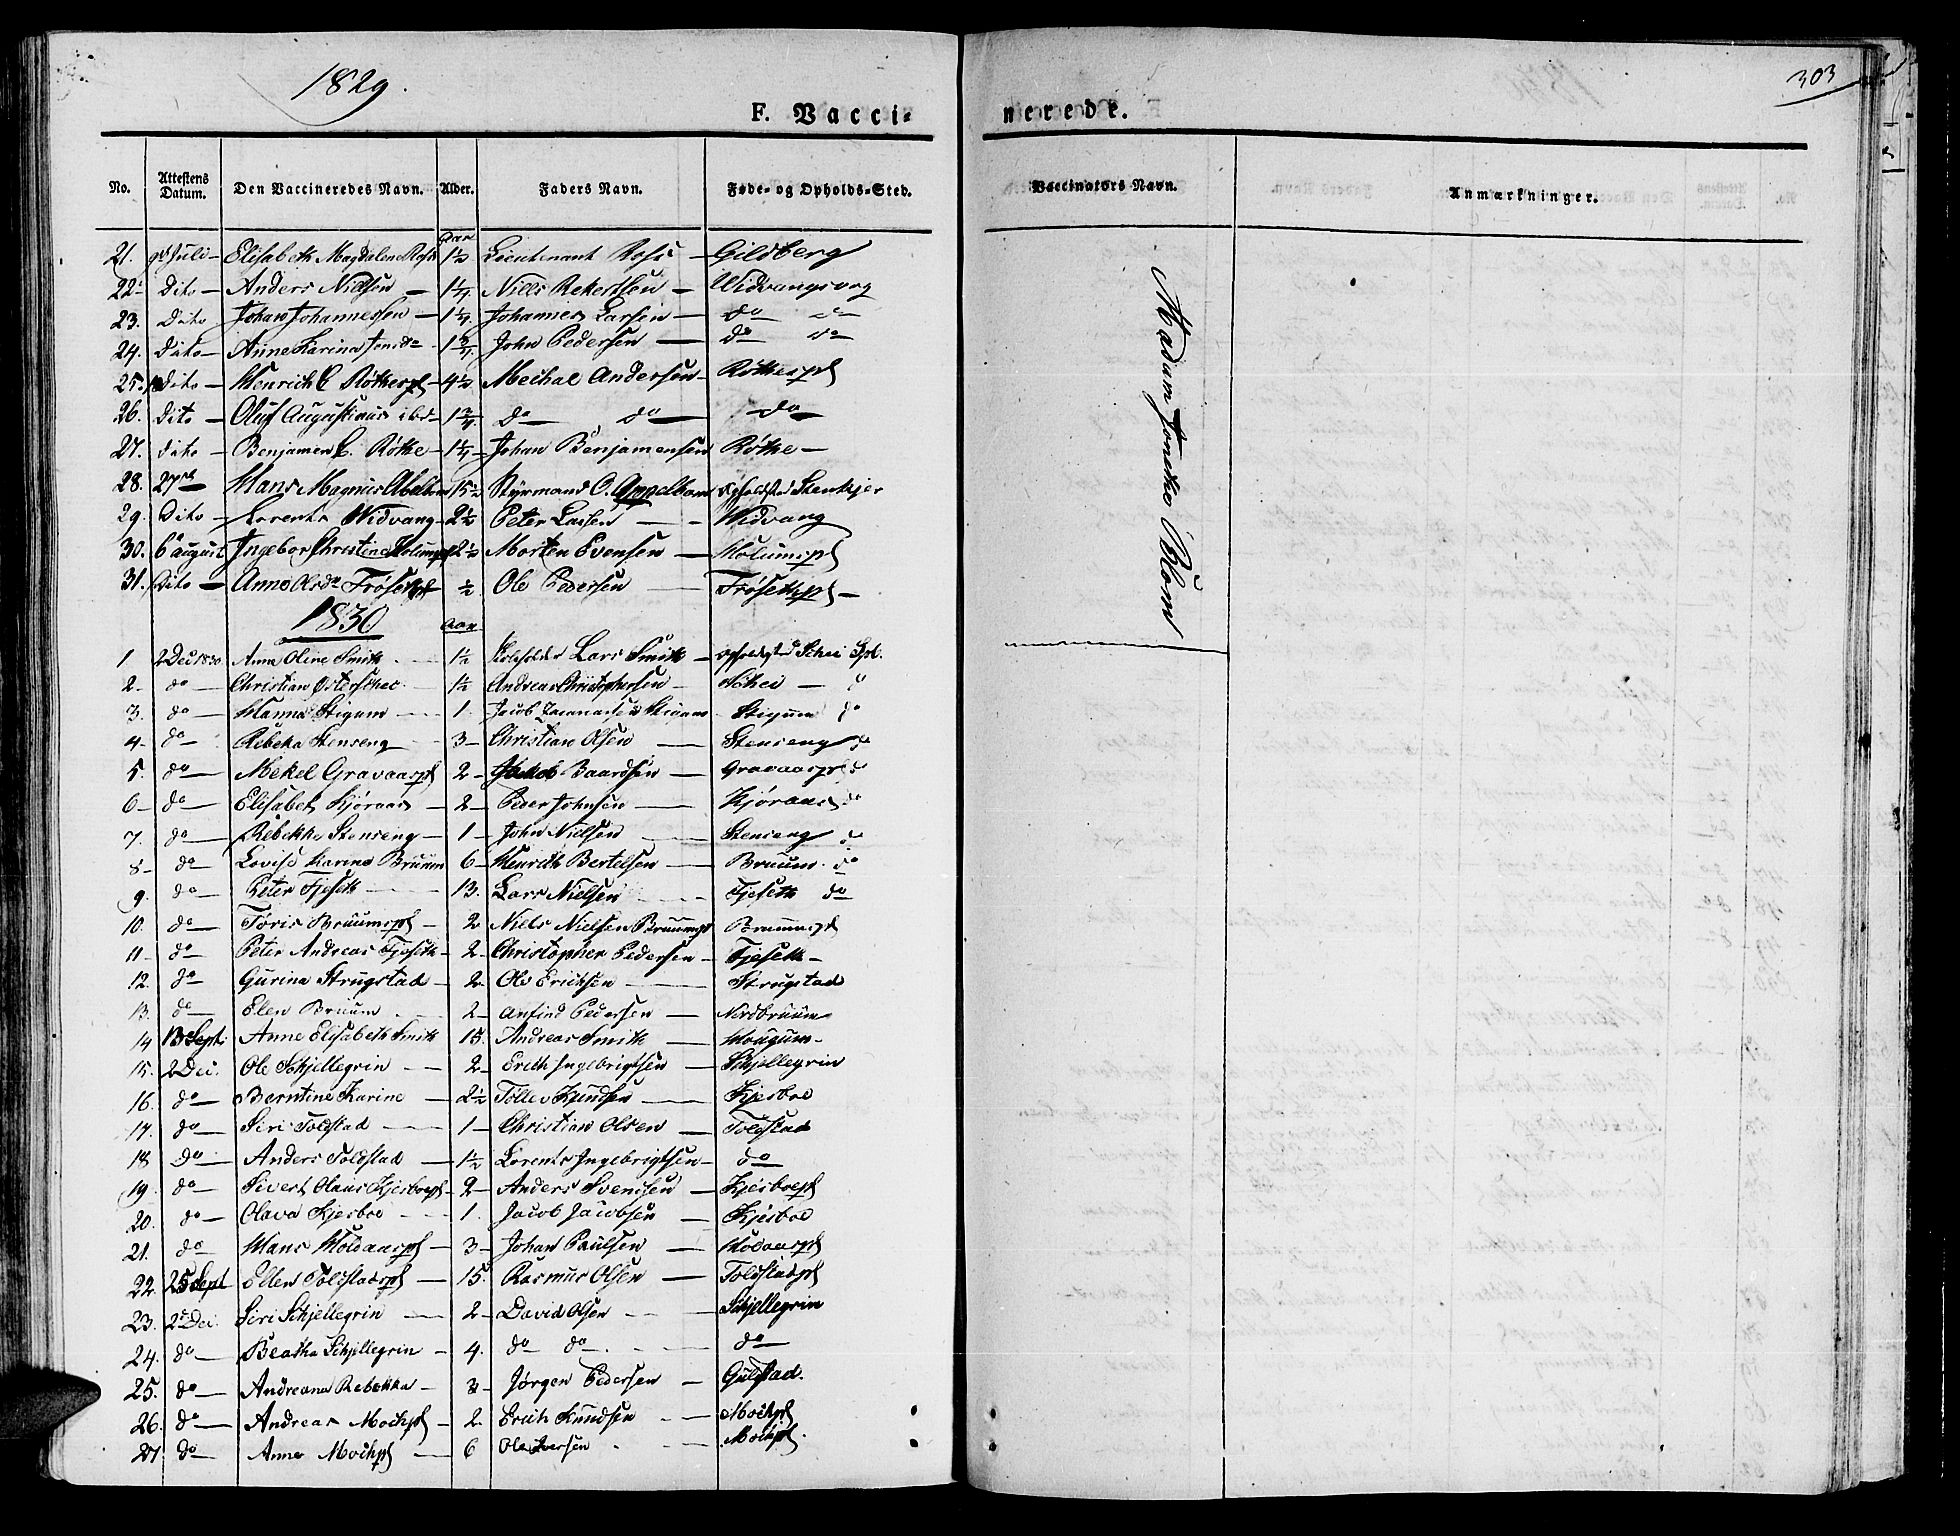 1829.
303
F. Vacci-
neredt.
No. Attestens Datum. Den Vaccineredes Navn. Alder. Faders Navn. Føde- og Opholds-Sted. Vaccinators Navn. Anmærkninger.
Aar
21. Juli – Elisabeth Magdalene Ross 1½ Lieutenant Ross – Gildberg
22. Dito – Anders Nielsen – 1¼ Niels – Widvangs
23. Dito Johan Johannessen – 1¼ Johannes Larsen – do do
24. Dito Anne Karina 1¾ John Pedersen – do do
25. Dito – Henrich Røthespl – 4½ Mechal Andersen – Røthespl
26. Dito – Oluf Augustinus ibd – 1¾ do do do
27. dito – Benjamen Røthe – 1¼ Johan Benjamensen Røthe –
28. 27de Hans Magnus 15½ Styrmand O. Appelbom opholdsted Stenkjer
29. Dito – Lorents Widvang – 2½ Peter Larsen – Widvang
30. 6te august Ingebor Christine 2½ Morten Evensen – Holumspl
31. Dito – Anne Frøsethspl ½ Ole Pedersen Frøsethspl –
1830 Aar
1 2 Dec 1830. Anna Oline Smith 1½ Lars Smith – opholdsted Schei Spl.
2 – do – Christian Østerschei 1½ Andreas Christophersen – Schei –
3. do – Hanna Stigum 1. Jacob Stigum do
4 – do Rebeka Stenseng 3 – Christian Olsen Stenseng do
5. do – Mekel Gravaaspl 2 – Jakob Baardsen – Gravaaspl do
6 – do – Elisabet Kjøraas – 2 – Peder Johnsen Kjøraas do
7. do – Rebekka Stenseng – 1 – John Nielsen Stenseng do
8 – do Lovise Karine Bruum 6 – Henrich Bertelsen Bruum. do
9. do – Peter Fjeseth 13. Lars Nielsen Fjeseth do
10. do – Bruumspl – 2 Niels Nielsen Bruumspl Bruumspl
11 – do – Peter Andreas Fjeseth – 2 – Christopher Pedersen – Fjeseth –
12. do Gurina Strugstad – 2 – Ole Erichsen Strugstad
13. do Elen Bruum 2 – Arfind Pedersen Nordbruum
14 13 Sept. Anne Elisabeth Smith 15. Andreas Smith Hougum –
15. 2 Dec. Ole Schjellegrin 2 – Erich Ingebrigtsen Schjellegrin
16. do – Berntine Karine – 2½ Tollev Knudsen Kjesboe
17. do – Siri Toldstad 1 – Christian Olsen – Toldstad
18 do – Anders Toldstad – 1½ Lorents Ingebrigtsen – do
19. do – Sivert Olaus Kjesboespl – 2 – Anders Svendsen – Kjesboespl
20. do – Olava Kjesboe 1. Jacob Jacobsen – Kjesboe
21. do Hans Moldaaspl – 3 – Johan Paulsen –
22. 25 Sept Ellen Toldstadspl – 15. Rasmus Olsen – Toldstadspl
23. 2 Dec. Siri Schjellegrin 2 – David Olsen Schjellegrin
24. do – Beatha Schjellegrin – 4. do do do
25. do – Andreana Rebekka – 3 – Jørgen Pedersen – Gulstad.
26. do – Andreas Mochspl – 2. Erich Knudsen Mochspl
27. do Anne Mochspl 6 Ole Iversen Mochspl.
Madam Blom